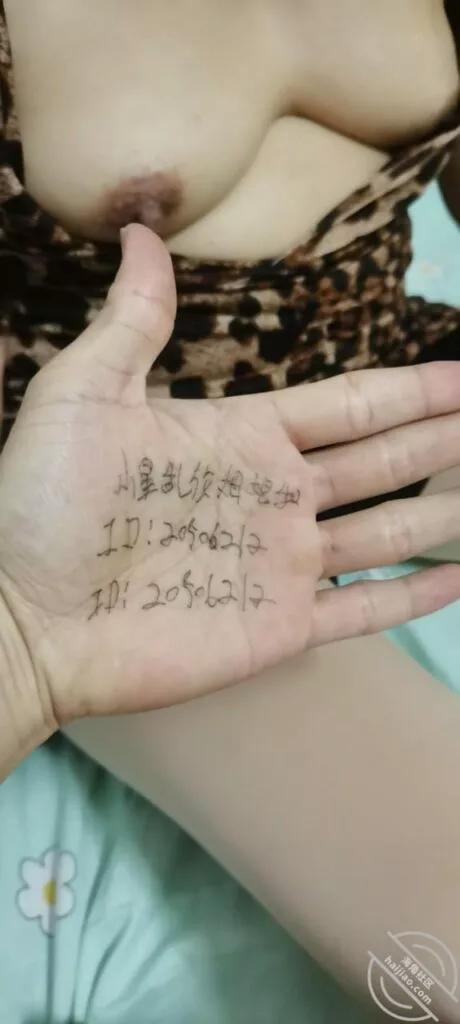 小星乱伦姐姐
ID:20506212
ID:20506212
海角社区
haijiao.com